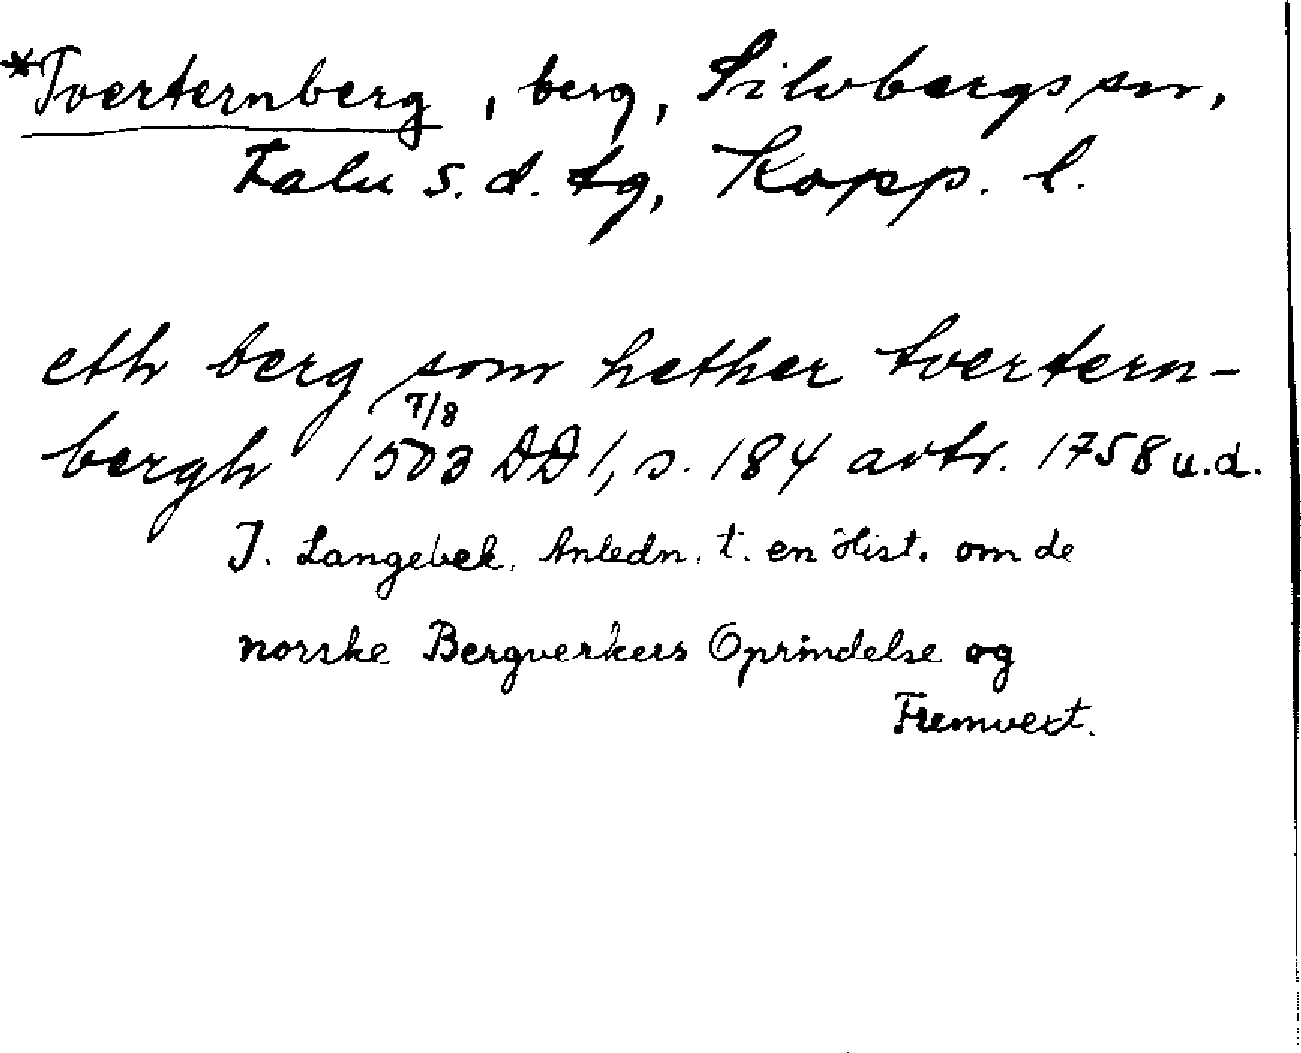 *Tverternberg, berg, Silvbergs sn,
Falu s. d. tg, Kopp. l.
eth berg som hether tvertern-
bergh 7/8 1503 DD 1, s. 184 avtr. 1758 u.d.
J. Langebek, Anledn. t. en Hist. om de
norske Bergverkers Oprindelse og
Fremvext.